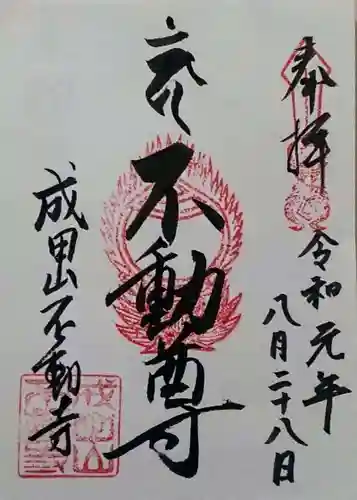 奉拝
令和元年
八月二十八日
不動尊
成田山不動寺